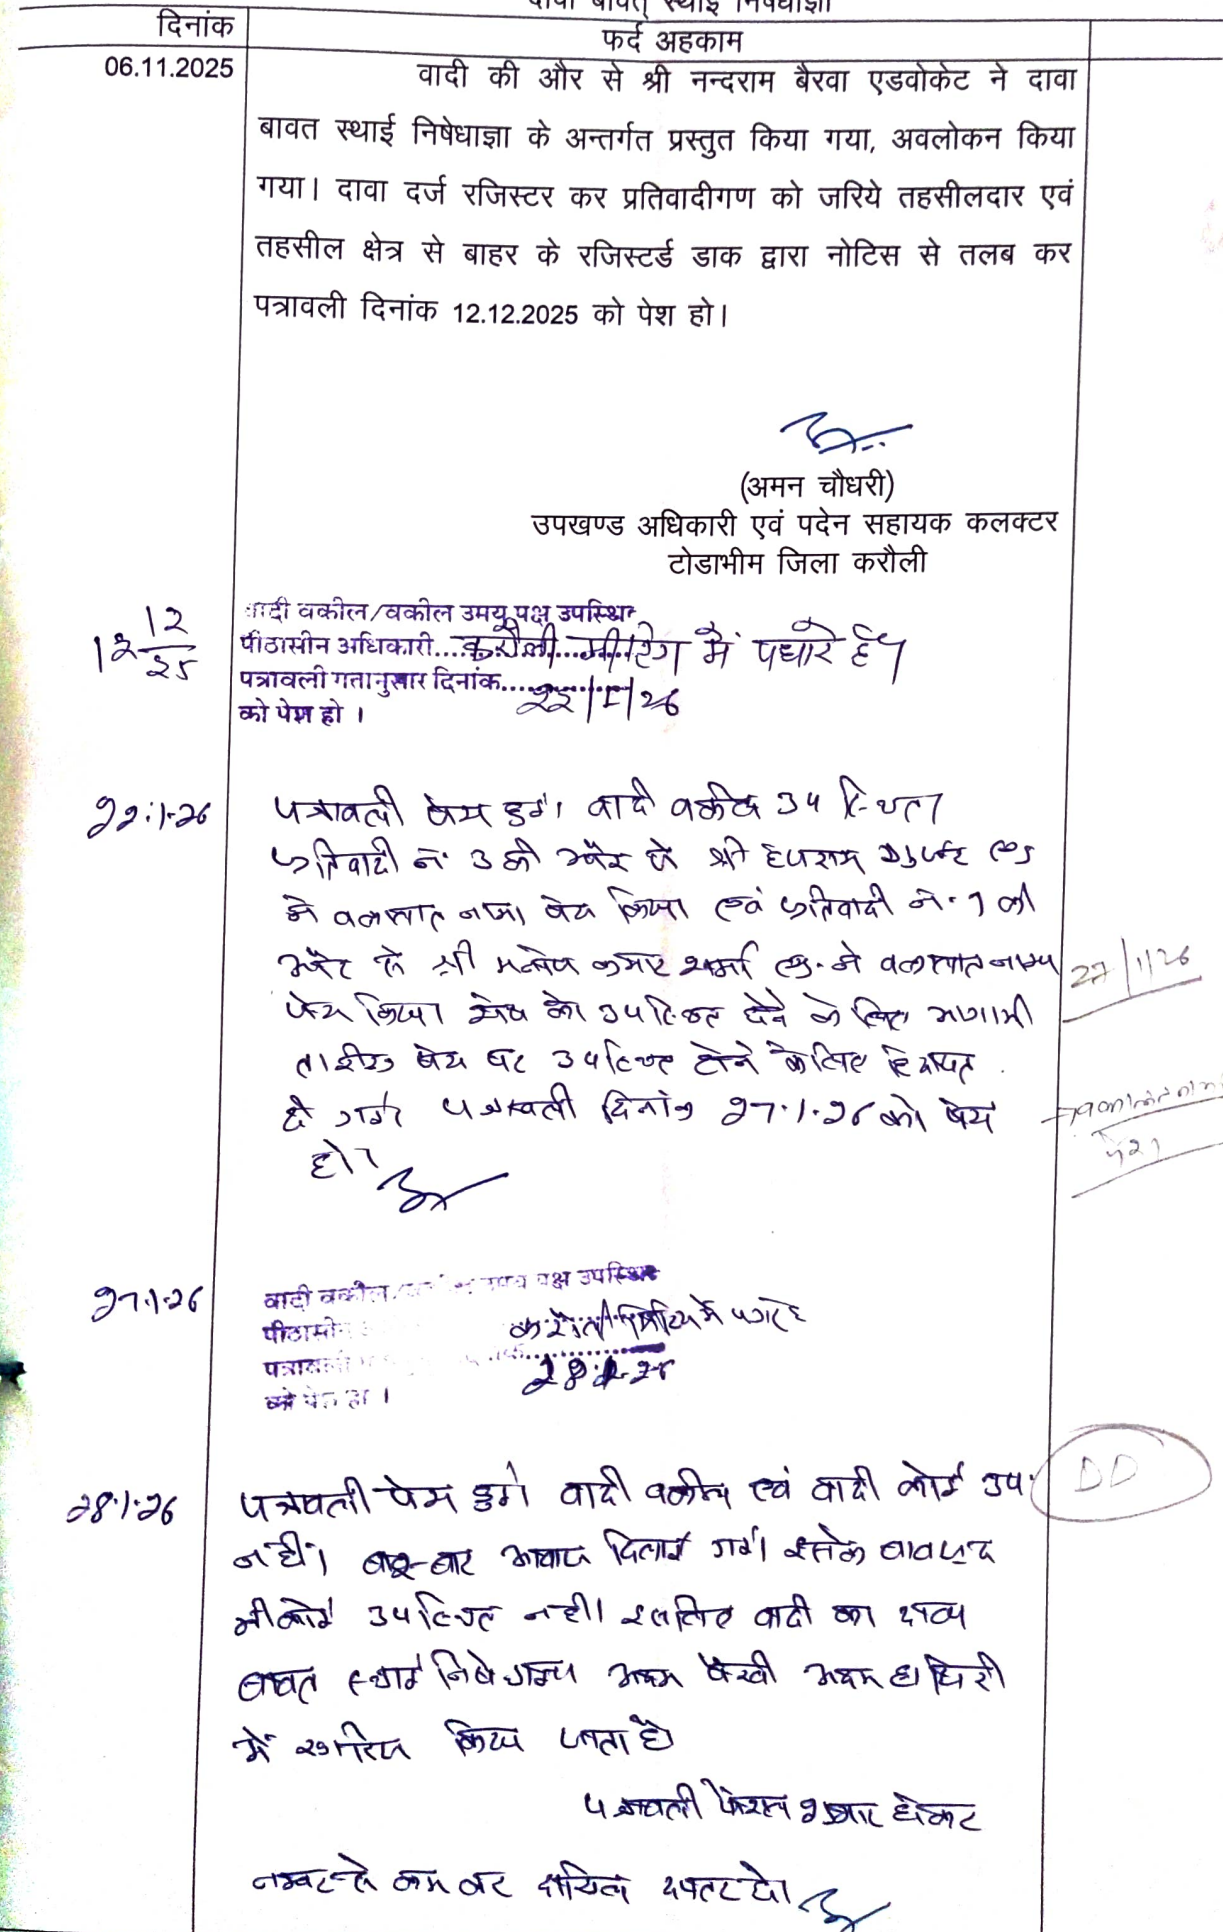 दावा बावत् स्थाई निषेधाज्ञा
दिनांक
फर्द अहकाम
06.11.2025
वादी की और से श्री नन्दराम बैरवा एडवोकेट ने दावा
बावत स्थाई निषेधाज्ञा के अन्तर्गत प्रस्तुत किया गया, अवलोकन किया
गया। दावा दर्ज रजिस्टर कर प्रतिवादीगण को जरिये तहसीलदार एवं
तहसील क्षेत्र से बाहर के रजिस्टर्ड डाक द्वारा नोटिस से तलब कर
पत्रावली दिनांक 12.12.2025 को पेश हो।
(अमन चौधरी)
उपखण्ड अधिकारी एवं पदेन सहायक कलक्टर
टोडाभीम जिला करौली
12 12/25
वादी वकील/वकील उमय पक्ष उपस्थित
पीठासीन अधिकारी....करौली मीटिंग में पधारे है।
पत्रावली गतानुसार दिनांक....22/1/26
को पेश हो ।
22.1.26
पत्रावली पेश हुई। वादी वकील उपस्थित।
प्रतिवादी नं. 3 की और से श्री
ने वकालत नामा पेश किया एवं प्रतिवादी नं. 1 की
और से श्री मनोज कुमार शर्मा एड. ने वकालतनामा
27/1/26
पेश किया। शेष को उपस्थित होने के लिए आगामी
तारीख पेशी पर उपस्थित होने के लिए हिदायत
दी गई। पत्रावली दिनांक 27.1.26 को पेश
वकालतनामा
पेश।
हो।
27.1.26
वादी वकील पक्ष उपस्थित
पीठासीन करौली मिटिंग में
28.1.26
को पेश हो ।
28.1.26
पत्रावली पेश हुई। वादी वकील एवं वादी कोई उप.
DD
नहीं। बार-बार आवाज दिलाई गई। इसके बावजूद
भी कोई उपस्थित नहीं। इसलिए वादी का दावा
बाबत स्थाई निषेधाज्ञा अदम पैरवी अदम हाजिरी
में खारिज किया जाता है।
पत्रावली फैसल शुमार होकर
नम्बर से कम कर दाखिल दफ्तर हो।